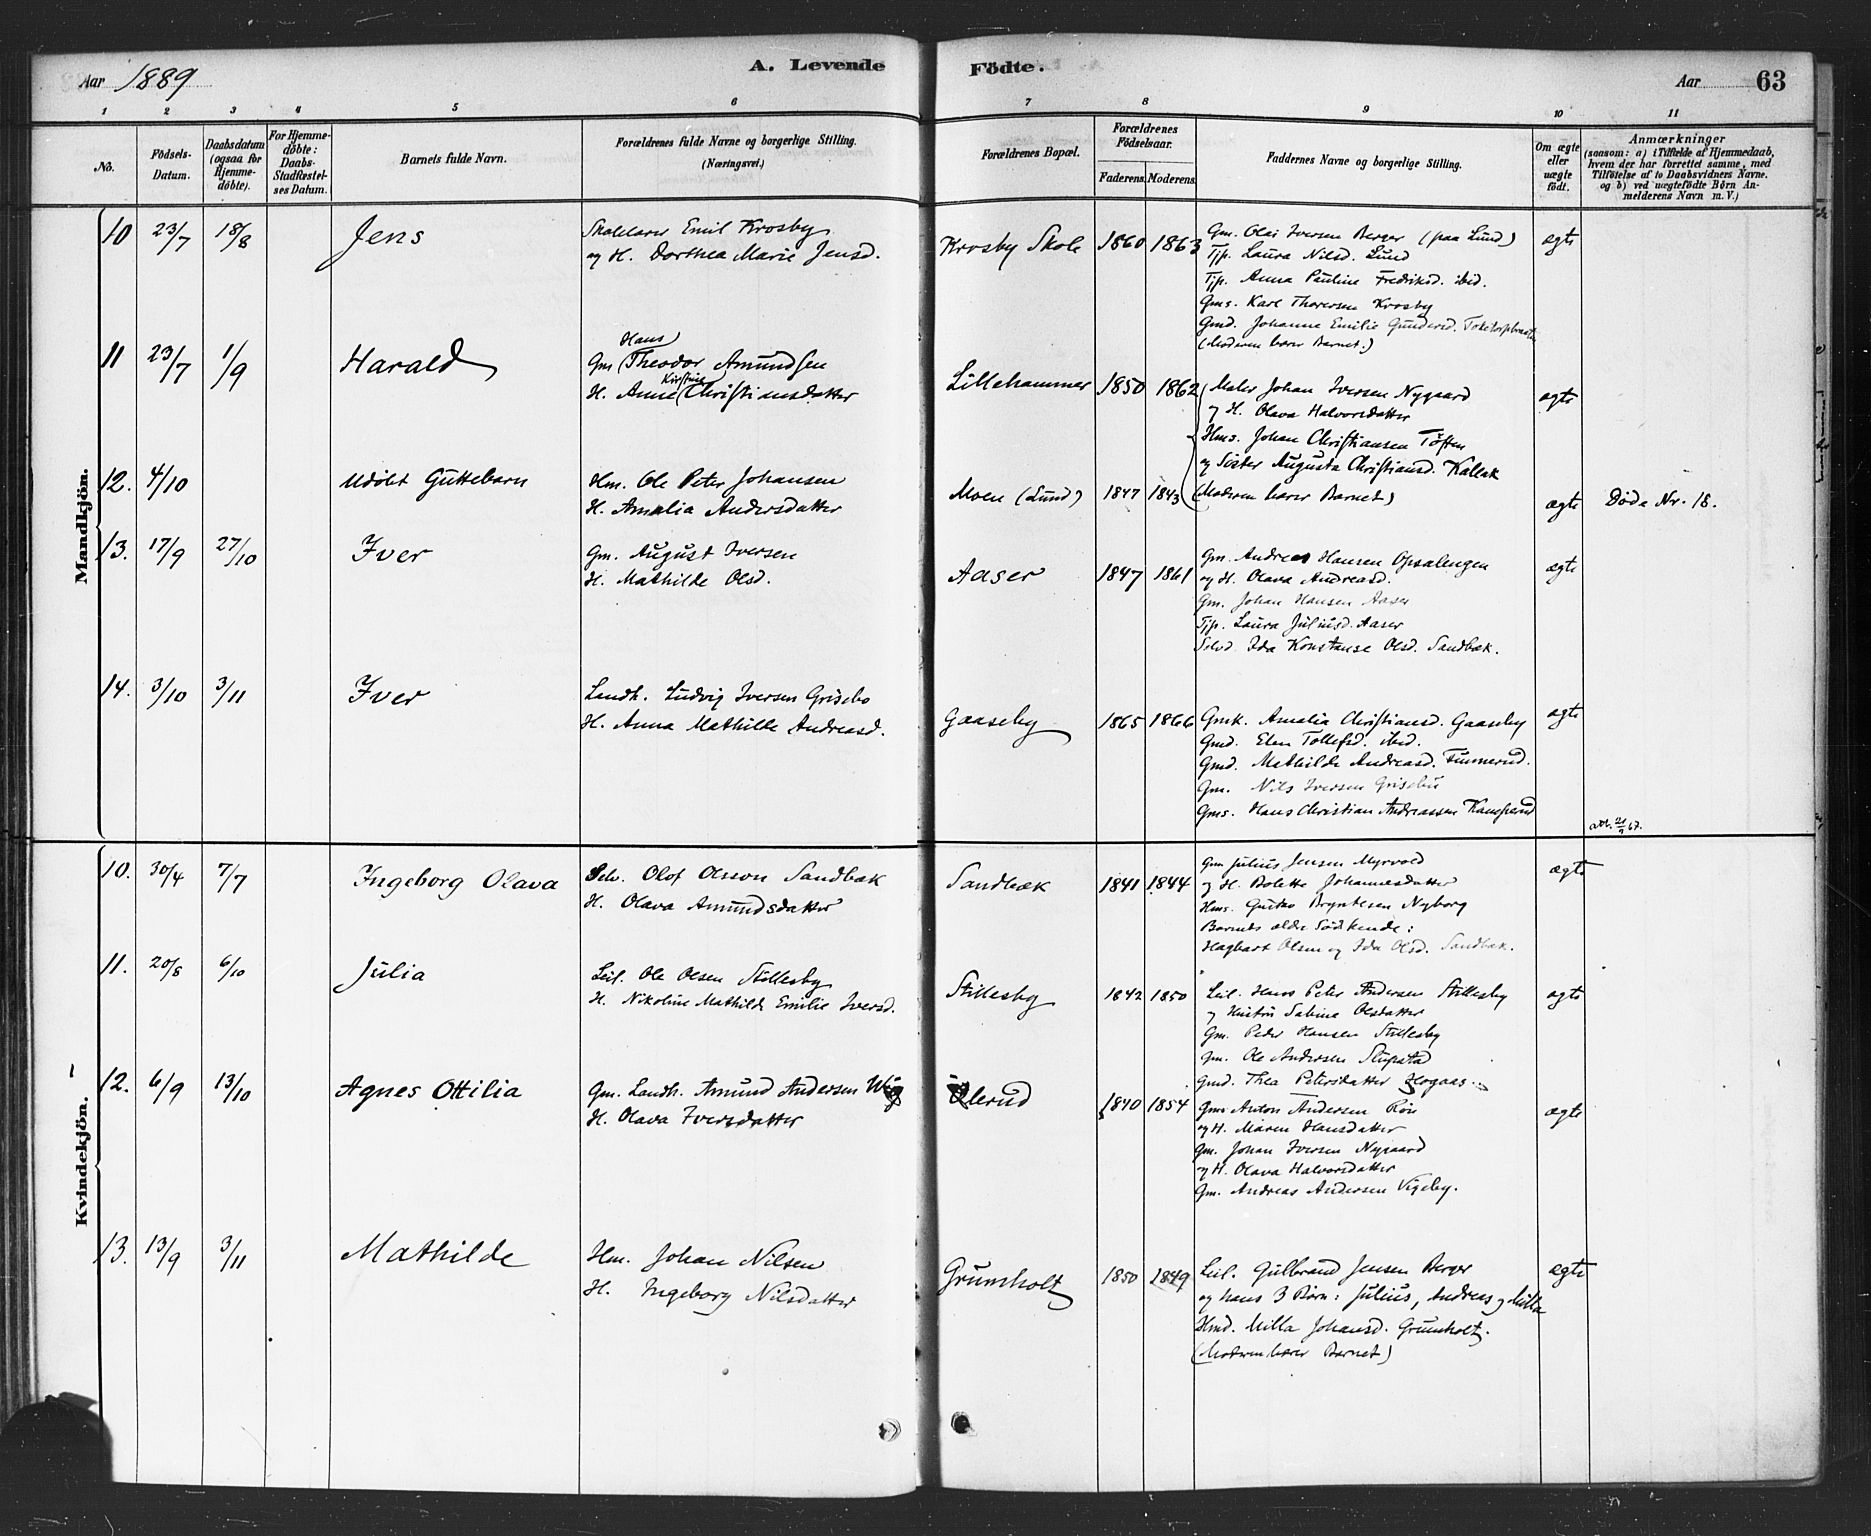 Aar 1889
A. Levende Födte.
Aar 63
1 2 3 4 5 6 7 8 9 10 11
No.
Födsels-Datum.
Daabsdatum (ogsaa for Hjemme-döbte).
For Hjemme-döbte: Daabs-Stadfæstel-ses Datum.
Barnets fulde Navn.
Forældrenes fulde Navne og borgerlige Stilling. (Næringsvei.)
Forældrenes Bopæl.
Forældrenes Födselsaar.
Faderens Moderens
Faddernes Navne og borgerlige Stilling.
Om ægte eller uægte födt.
Anmærkninger
(saasom: a) i Tilfælde af Hjemmedaab, hvem der har forrettet samme, med Tilföielse af to Daabsvidners Navne. og b) ved uægtefödte Börn An-melderens Navn m.V.)
Mandkjön.
10 23/7 18/8 Jens
Skolelærer Emil Krosby
og H. Dorthea Marie Jensd.
Krosby Skole 1860 1863
Gm. Olai Iversen Berger (paa Lund)
Tjp. Laura Nilsd. Lund
Tjp. Anna Pauline Fredriksd. ibid.
Gms. Karl Thoresen Krosby
Gmd. Johanne Emilie Gundersd.
(Moderen bærer Barnet.)
ægte
11 23/7 1/9 Harald
Hans
Gm Theodor Amundsen
Kirstine
H. Anne Christiansdatter
Lillehammer 1850 1862
Maler Johan Iversen Nygaard
og H. Olava Halvorsdatter
Hms. Johan Christiansen Töften
og Söster Augusta Christiansd. Kallak
(Moderen bærer Barnet)
ægte
12. 4/10 Udöbt Guttebarn
Hm. Ole Peter Johansen
H. Amalia Andersdatter
Moen (Lund) 1847 1843
ægte Döde Nr. 18.
13. 17/9 27/10 Iver
Gm. August Iversen
H. Mathilde Olsd.
Aaser 1847 1861
Gm. Andreas Hansen Opsalengen
og H. Olava Andreasd.
Gm. Johan Hansen Aaser
Tjp. Laura Juliusd. Aaser
Selvd. Ida Konstanse Olsd. Sandbæk.
ægte
14. 3/10 3/11 Iver
Landh. Ludvig Iversen Grisebo
H. Anna Mathilde Andreasd.
Gaaseby 1865 1866
Gmk. Amalia Christiansd. Gaaseby
Gmd. Elen Tollefsd. ibid.
Gmd. Mathilde Andreasd. Finnerud.
Gm. Nils Iversen Grisebu
Gms. Hans Christian Andreassen
ægte
Kvindekjön.
10. 30/4 7/7 Ingeborg Olava
Selv. Olof Olsson Sandbæk
H. Olava Amundsdatter
Sandbæk 1841 1844
Gm Julius Jensen Myrvold
og H. Bolette Johannesdatter
Hms. Gustav Bryntesen Nyborg
Barnets ældre Södskende:
Hagbart Olsen og Ida Olsd. Sandbæk.
ægte
11. 20/8 6/10 Julia
Leil. Ole Olsen Stillesby
H. Nikoline Mathilde Emilie Iversd.
Stillesby 1842 1850
Leil. Hans Peter Andersen Stillesby
og Hustru Sabine Olsdatter
Gm. Peder Hansen Stillesby
Gm. Ole Andersen Slupstad
Gmd. Thea Petersdatter Hogaas
ægte
12. 6/9 13/10 Agnes Ottilia
Gm. Landh. Amund Andersen Wig
H. Olava Iversdatter
Ölerud 1840 1854
Gm. Anton Andersen Rön
og H. Maren Hansdatter
Gm. Johan Iversen Nygaard
og H. Olava Halvorsdatter
Gm. Andreas Andersen Vigeby.
ægte
13. 13/9 3/11 Mathilde
Hm. Johan Nilsen
H. Ingeborg Nilsdatter
Grumholt 1850 1849
Leil. Gulbrand Jensen Berger
og hans 3 Börn: Julius, Andreas og Milla
Hmd. Milla Johansd. Grumholt.
(Moderen bærer Barnet)
ægte